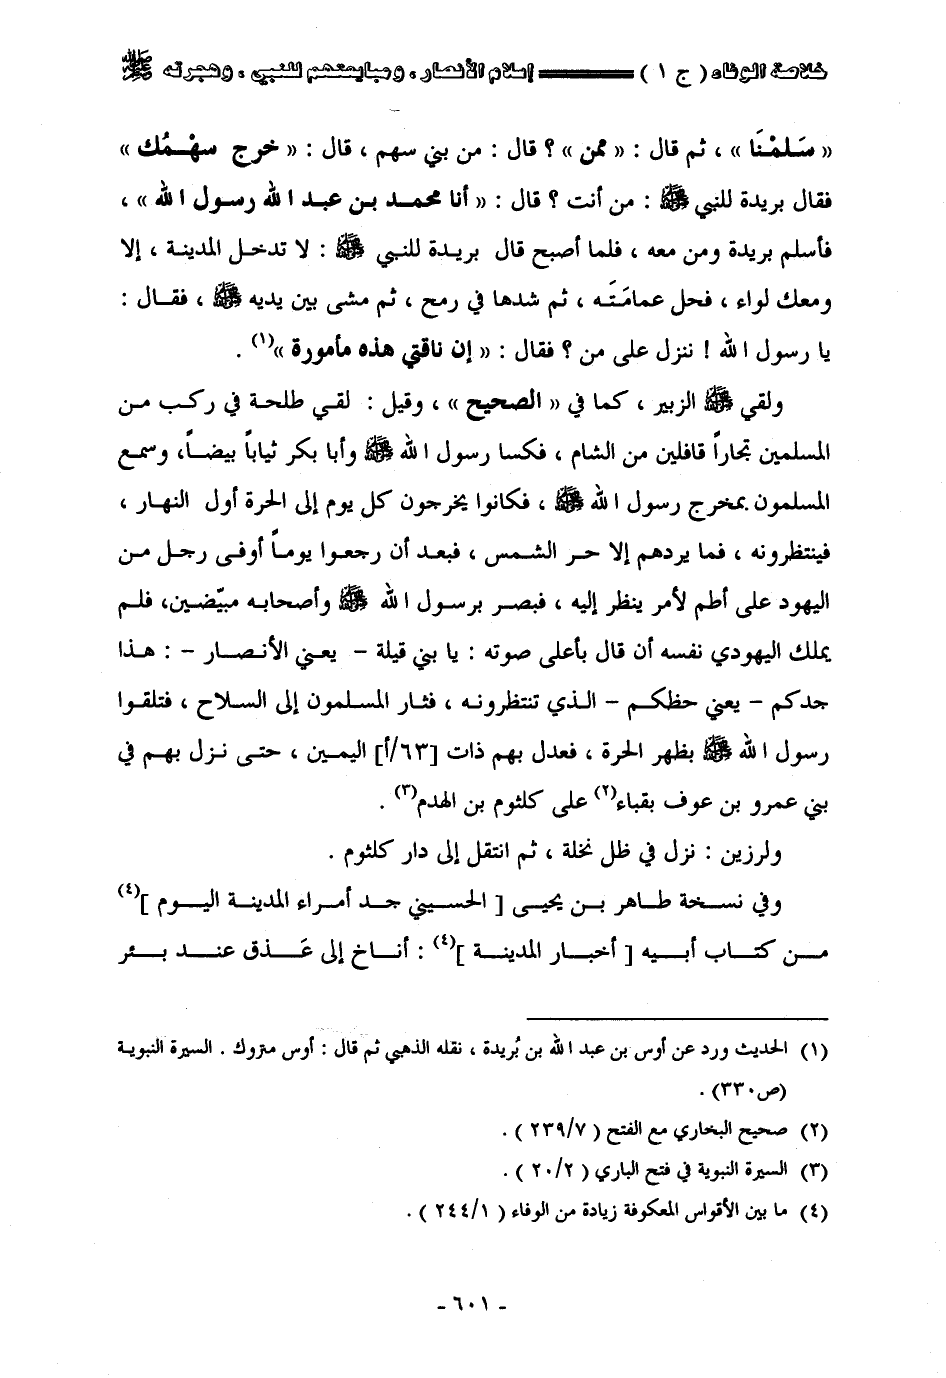 خلاصة الوفاء ( ج ١ ) ـــــــــ إسلام الأنصار ، ومبايعتهم للنبي ، وهجرته ﷺ
« سَـلمْنَا » ، ثم قال : « ممن » ؟ قال : من بني سهم ، قال : « خرج سهْـمُك »
فقال بريدة للنبي ﷺ : من أنت ؟ قال : « أنا محمـد بـن عبـد الله رسـول الله » ،
فأسلم بريدة ومن معه ، فلما أصبح قال بريـدة للنـبي ﷺ : لا تدخـل المدينـة ، إلا
ومعك لواء ، فـحل عمامَتَـه ، ثم شدها في رمح ، ثم مشى بين يديه ﷺ ، فقـال :
يا رسول الله ! ننزل على من ؟ فقال : « إن ناقتي هذه مأمورة »(١) .
ولقي ﷺ الزبير ، كما في « الصحيح » ، وقيل : لقـي طلحـة في ركـب مـن
المسلمين تجاراً قافلين من الشام ، فكسا رسول الله ﷺ وأبا بكر ثياباً بيضـاً، وسمـع
المسلمون بمخرج رسول الله ﷺ ، فكانوا يخرجون كل يوم إلى الحرة أول النهار ،
فينتظرونه ، فما يردهم إلا حـر الشـمس ، فبعـد أن رجعـوا يومـاً أوفـى رجـل مـن
اليهود على أطم لأمر ينظر إليه ، فبصـر برسـول الله ﷺ وأصحابـه مبيّضـين، فلـم
يملك اليهودي نفسه أن قال بأعلى صوته : يا بني قيلة – يعـني الأنـصـار – : هـذا
جدكم – يعني حظكـم – الـذي تنتظرونـه ، فثـار المسلمون إلى السـلاح ، فتلقـوا
رسول الله ﷺ بظهر الحرة ، فعدل بهم ذات [٦٣/أ] اليمين ، حتـى نـزل بهـم في
بني عمرو بن عوف بقباء(٢) على كلثوم بن الهدم(٣) .
ولرزين : نزل في ظل نخلة ، ثم انتقل إلى دار كلثوم .
وفي نسـخة طـاهر بـن يحيـى [ الحسيني جـد أمـراء المدينـة اليـوم ](٤)
مـن كتـاب أبـيـه [ أخبـار المدينـة ](٤) : أنـاخ إلى عَـذق عنـد بـئر
(١) الحديث ورد عن أوس بن عبد الله بن بُريدة ، نقله الذهبي ثم قال : أوس متروك . السيرة النبويـة
(ص٣٣٠) .
(٢) صحيح البخاري مع الفتح ( ٢٣٩/٧ ) .
(٣) السيرة النبوية في فتح الباري ( ٢٠/٢ ) .
(٤) ما بين الأقواس المعكوفة زيادة من الوفاء ( ٢٤٤/١ ) .
- ٦٠١ -